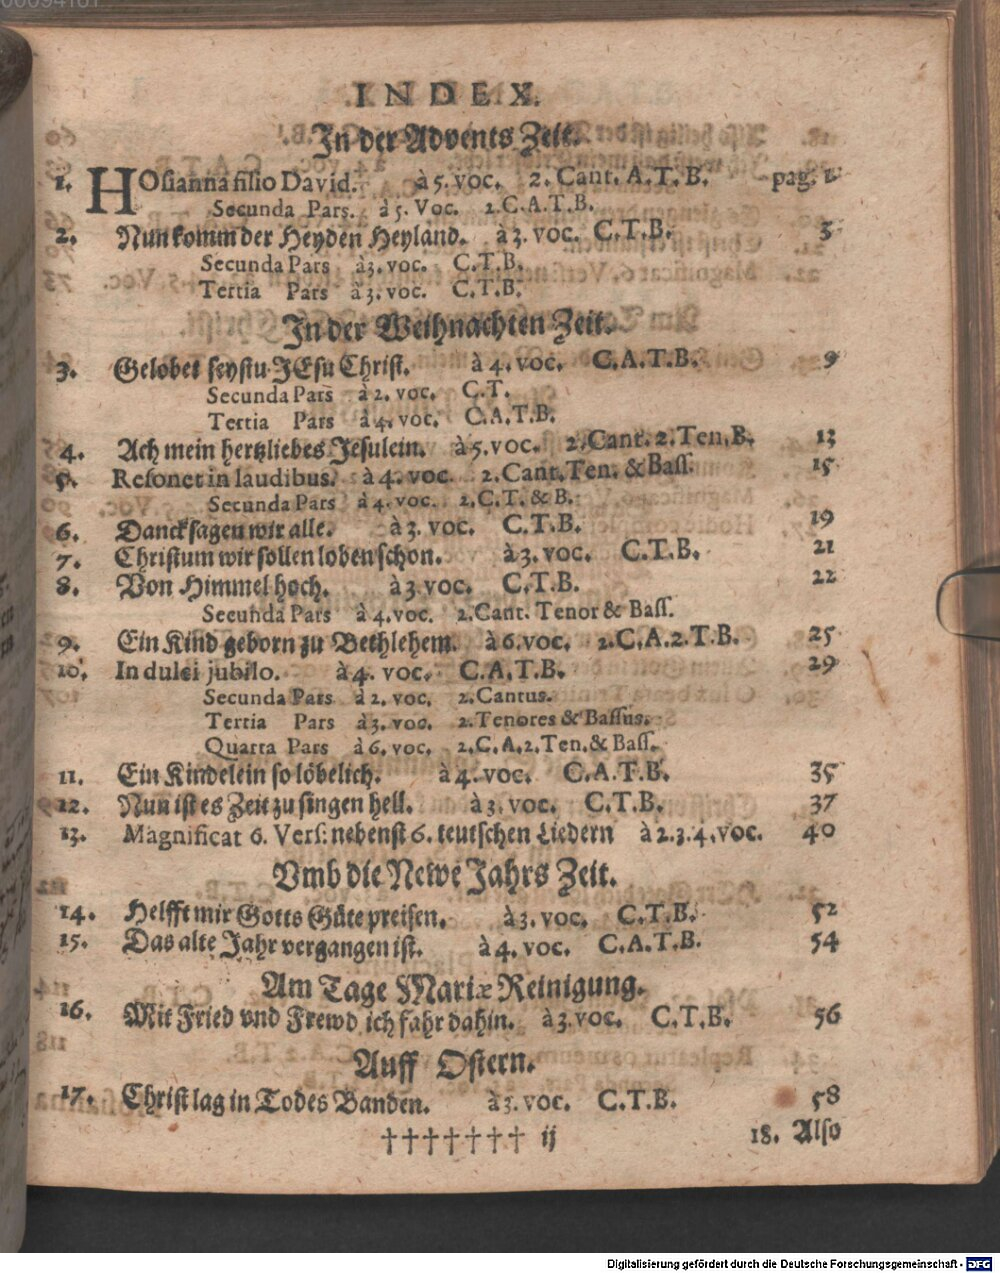 00094101
INDEX.
In der Advents Zeit.
1. HOsianna filio David. à 5. voc. 2. Cant. A.T.B. pag. 1
Secunda Pars. à 5. Voc. 2.C.A.T.B.
2. Nun komm der Heyden Heyland. à 3. voc. C.T.B. 5
Secunda Pars à 3. voc. C.T.B.
Tertia Pars à 3. voc. C.T.B.
In der Weihnachten Zeit.
3. Gelobet seystu JEsu Christ. à 4. voc. C.A.T.B. 9
Secunda Pars à 2. voc. C.T.
Tertia Pars à 4. voc. C.A.T.B.
4. Ach mein hertzliebes Jesulein. à 5. voc. 2.Cant. 2. Ten. B. 13
5. Resonet in laudibus. à 4. voc. 2. Cant. Ten. & Bass. 15
Secunda Pars à 4. voc. 2.C.T. & B.
6. Dancksagen wir alle. à 3. voc. C.T.B. 19
7. Christum wir sollen loben schon. à 3. voc. C.T.B. 21
8. Von Himmel hoch. à 3. voc. C.T.B. 22
Secunda Pars à 4. voc. 2. Cant. Tenor & Bass.
9. Ein Kind geborn zu Bethlehem. à 6. voc. 2.C.A.2.T.B. 25
10. In dulci jubilo. à 4. voc. C.A.T.B. 29
Secunda Pars à 2. voc. 2. Cantus.
Tertia Pars à 3. voc. 2. Tenores & Bassus.
Quarta Pars à 6. voc. 2.C.A.2.Ten.& Bass.
11. Ein Kindelein so löbelich. à 4. voc. C.A.T.B. 35
12. Nun ist es Zeit zu singen hell. à 3. voc. C.T.B. 37
13. Magnificat 6. Vers. nebenst 6. teutschen Liedern à 2.3.4. voc. 40
Vmb die Newe Jahrs Zeit.
14. Helfft mir Gotts Güte preisen. à 3. voc. C.T.B. 52
15. Das alte Jahr vergangen ist. à 4. voc. C.A.T.B. 54
Am Tage Mariæ Reinigung.
16. Mit Fried vnd Frewd ich fahr dahin. à 3. voc. C.T.B. 56
Auff Ostern.
17. Christ lag in Todes Banden. à 3. voc. C.T.B. 58
††††††† ij 18. Also
Digitalisierung gefördert durch die Deutsche Forschungsgemeinschaft - DFG